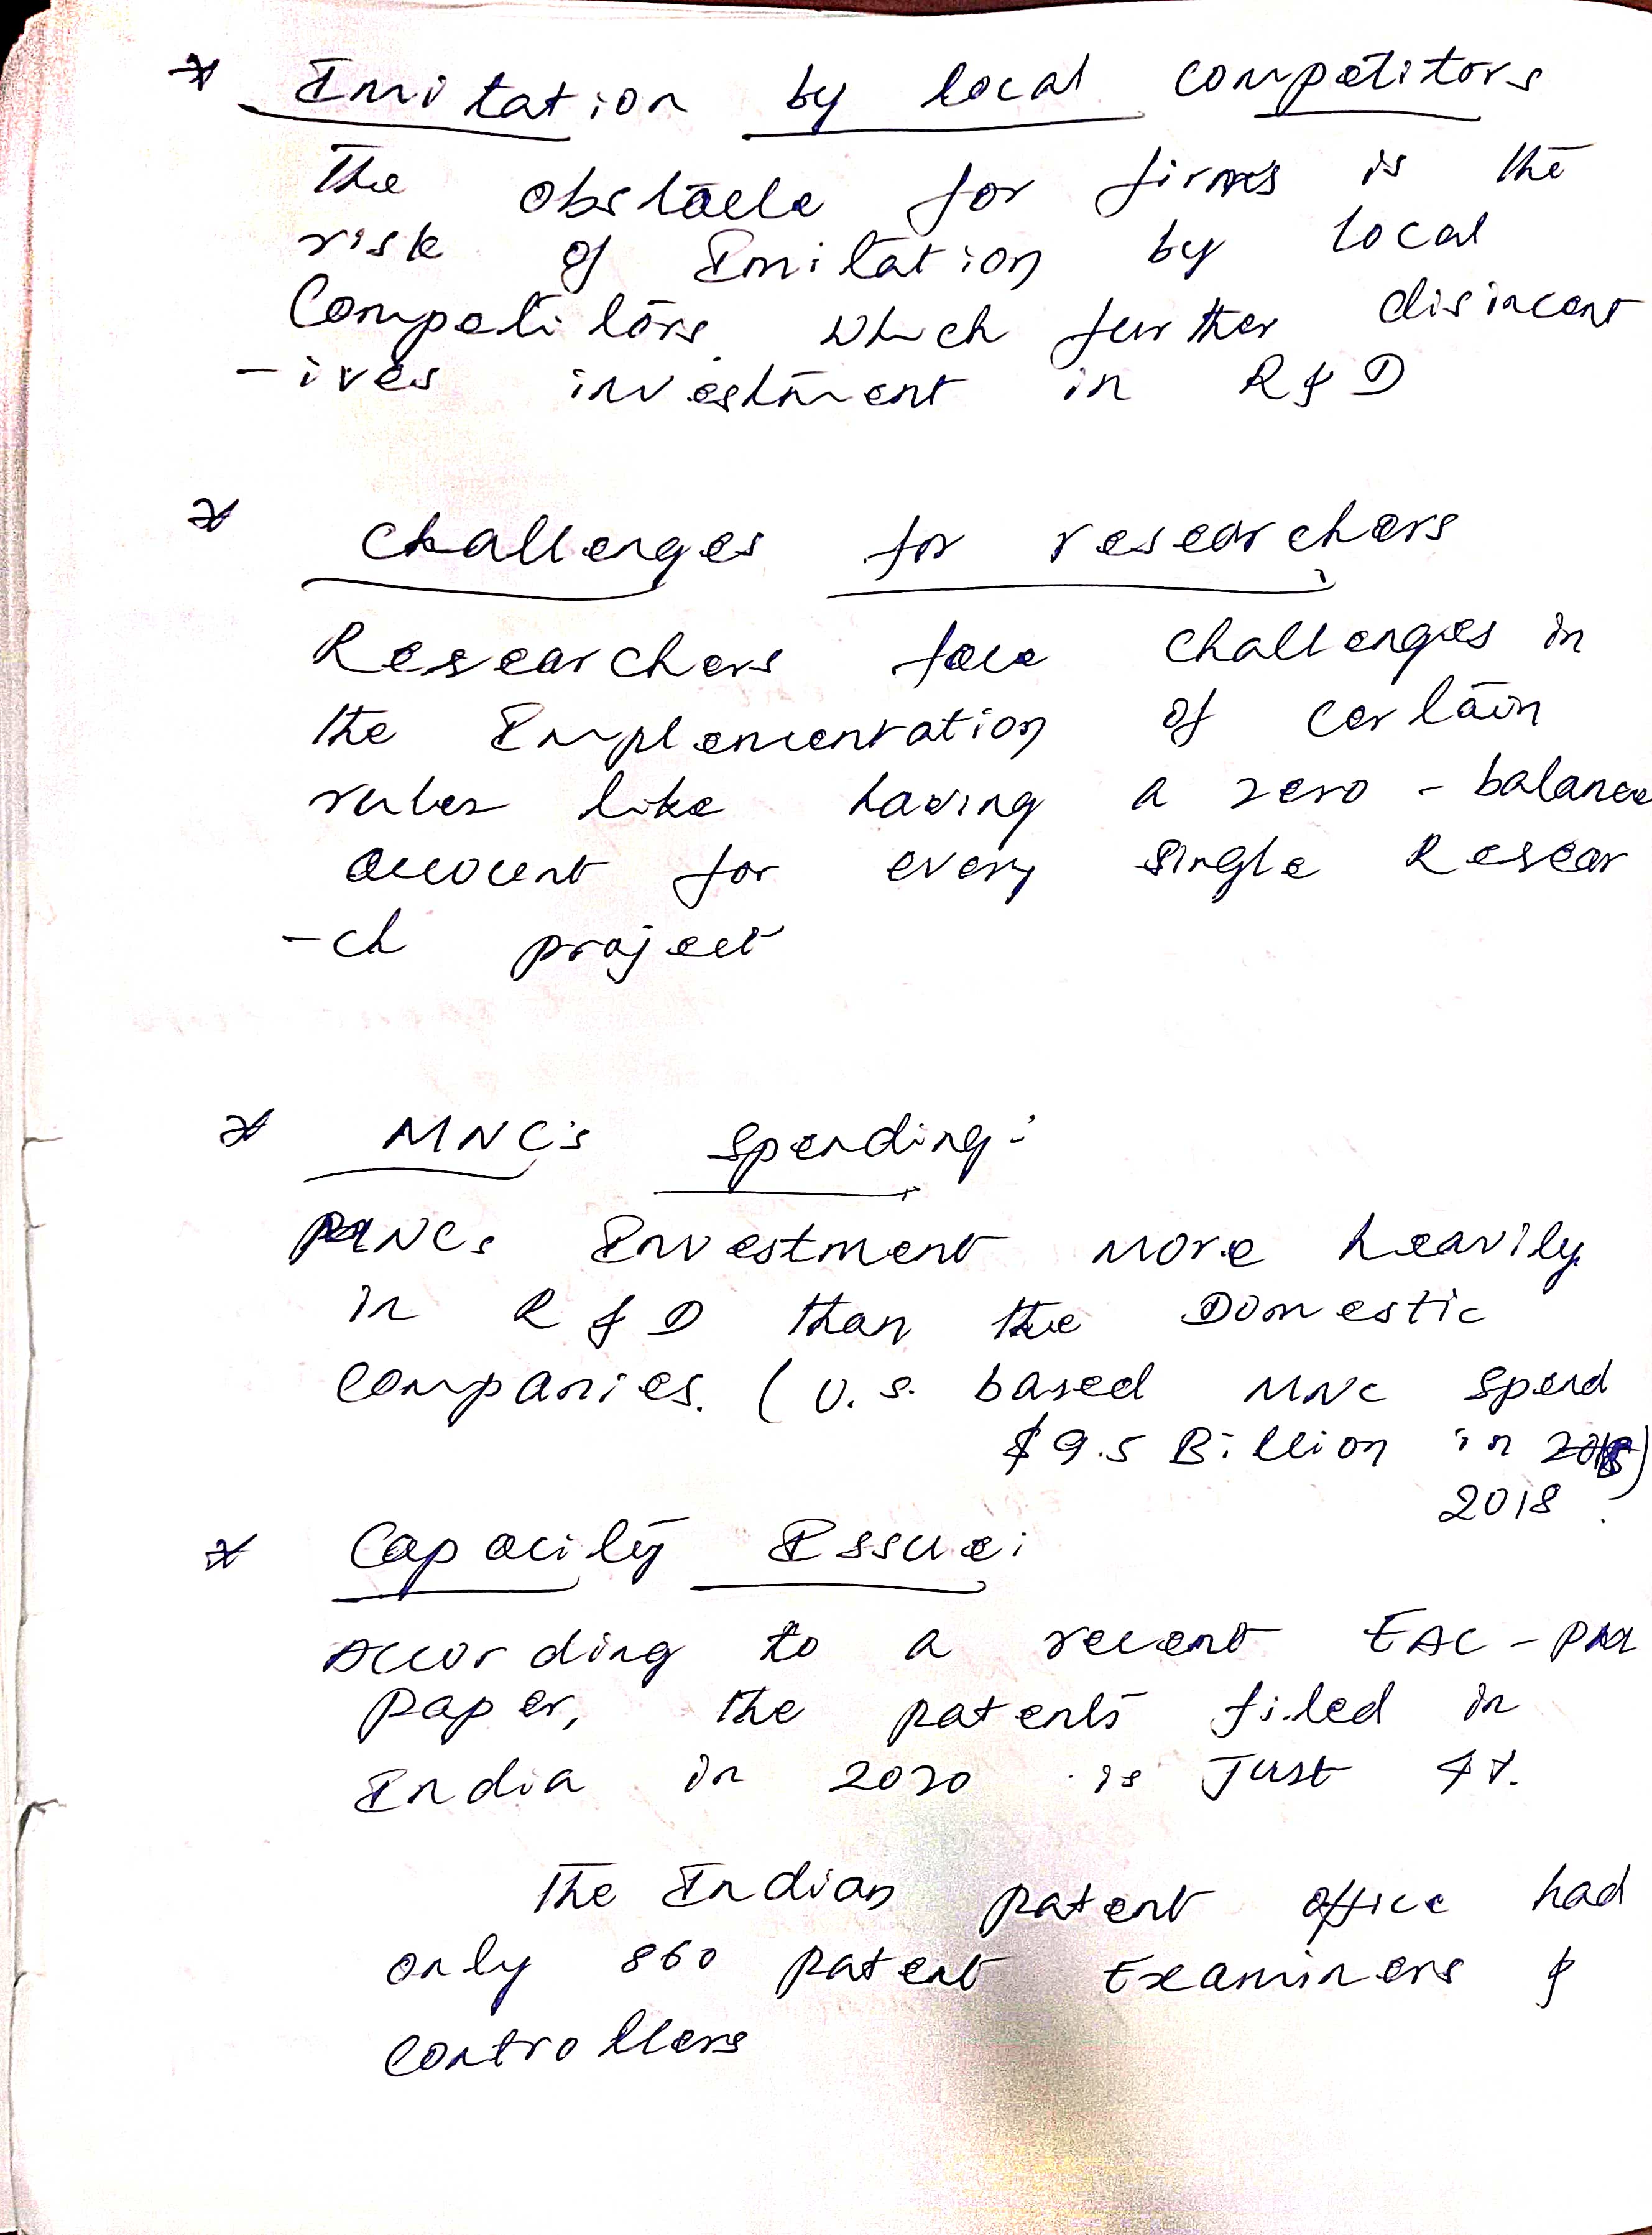 * Imitation by local competitors
The obstacle for firms is the
risk of Imitation by local
Competitors which further disincent
-ives investment in R & D
* Challenges for researchers
Researchers face challenges in
the Implementation of certain
rules like having a zero - balance
account for every single Resear
-ch project
* MNC's spending:
MNCs Investment more heavily
in R & D than the Domestic
companies. (U.S. based MNC spend
$ 9.5 Billion in 2018)
2018
* Capacity Issue:
According to a recent EAC - PM
paper, the patents filed in
India in 2020 is Just 4%.
The Indian patent office had
only 860 patent Examiners &
controllers